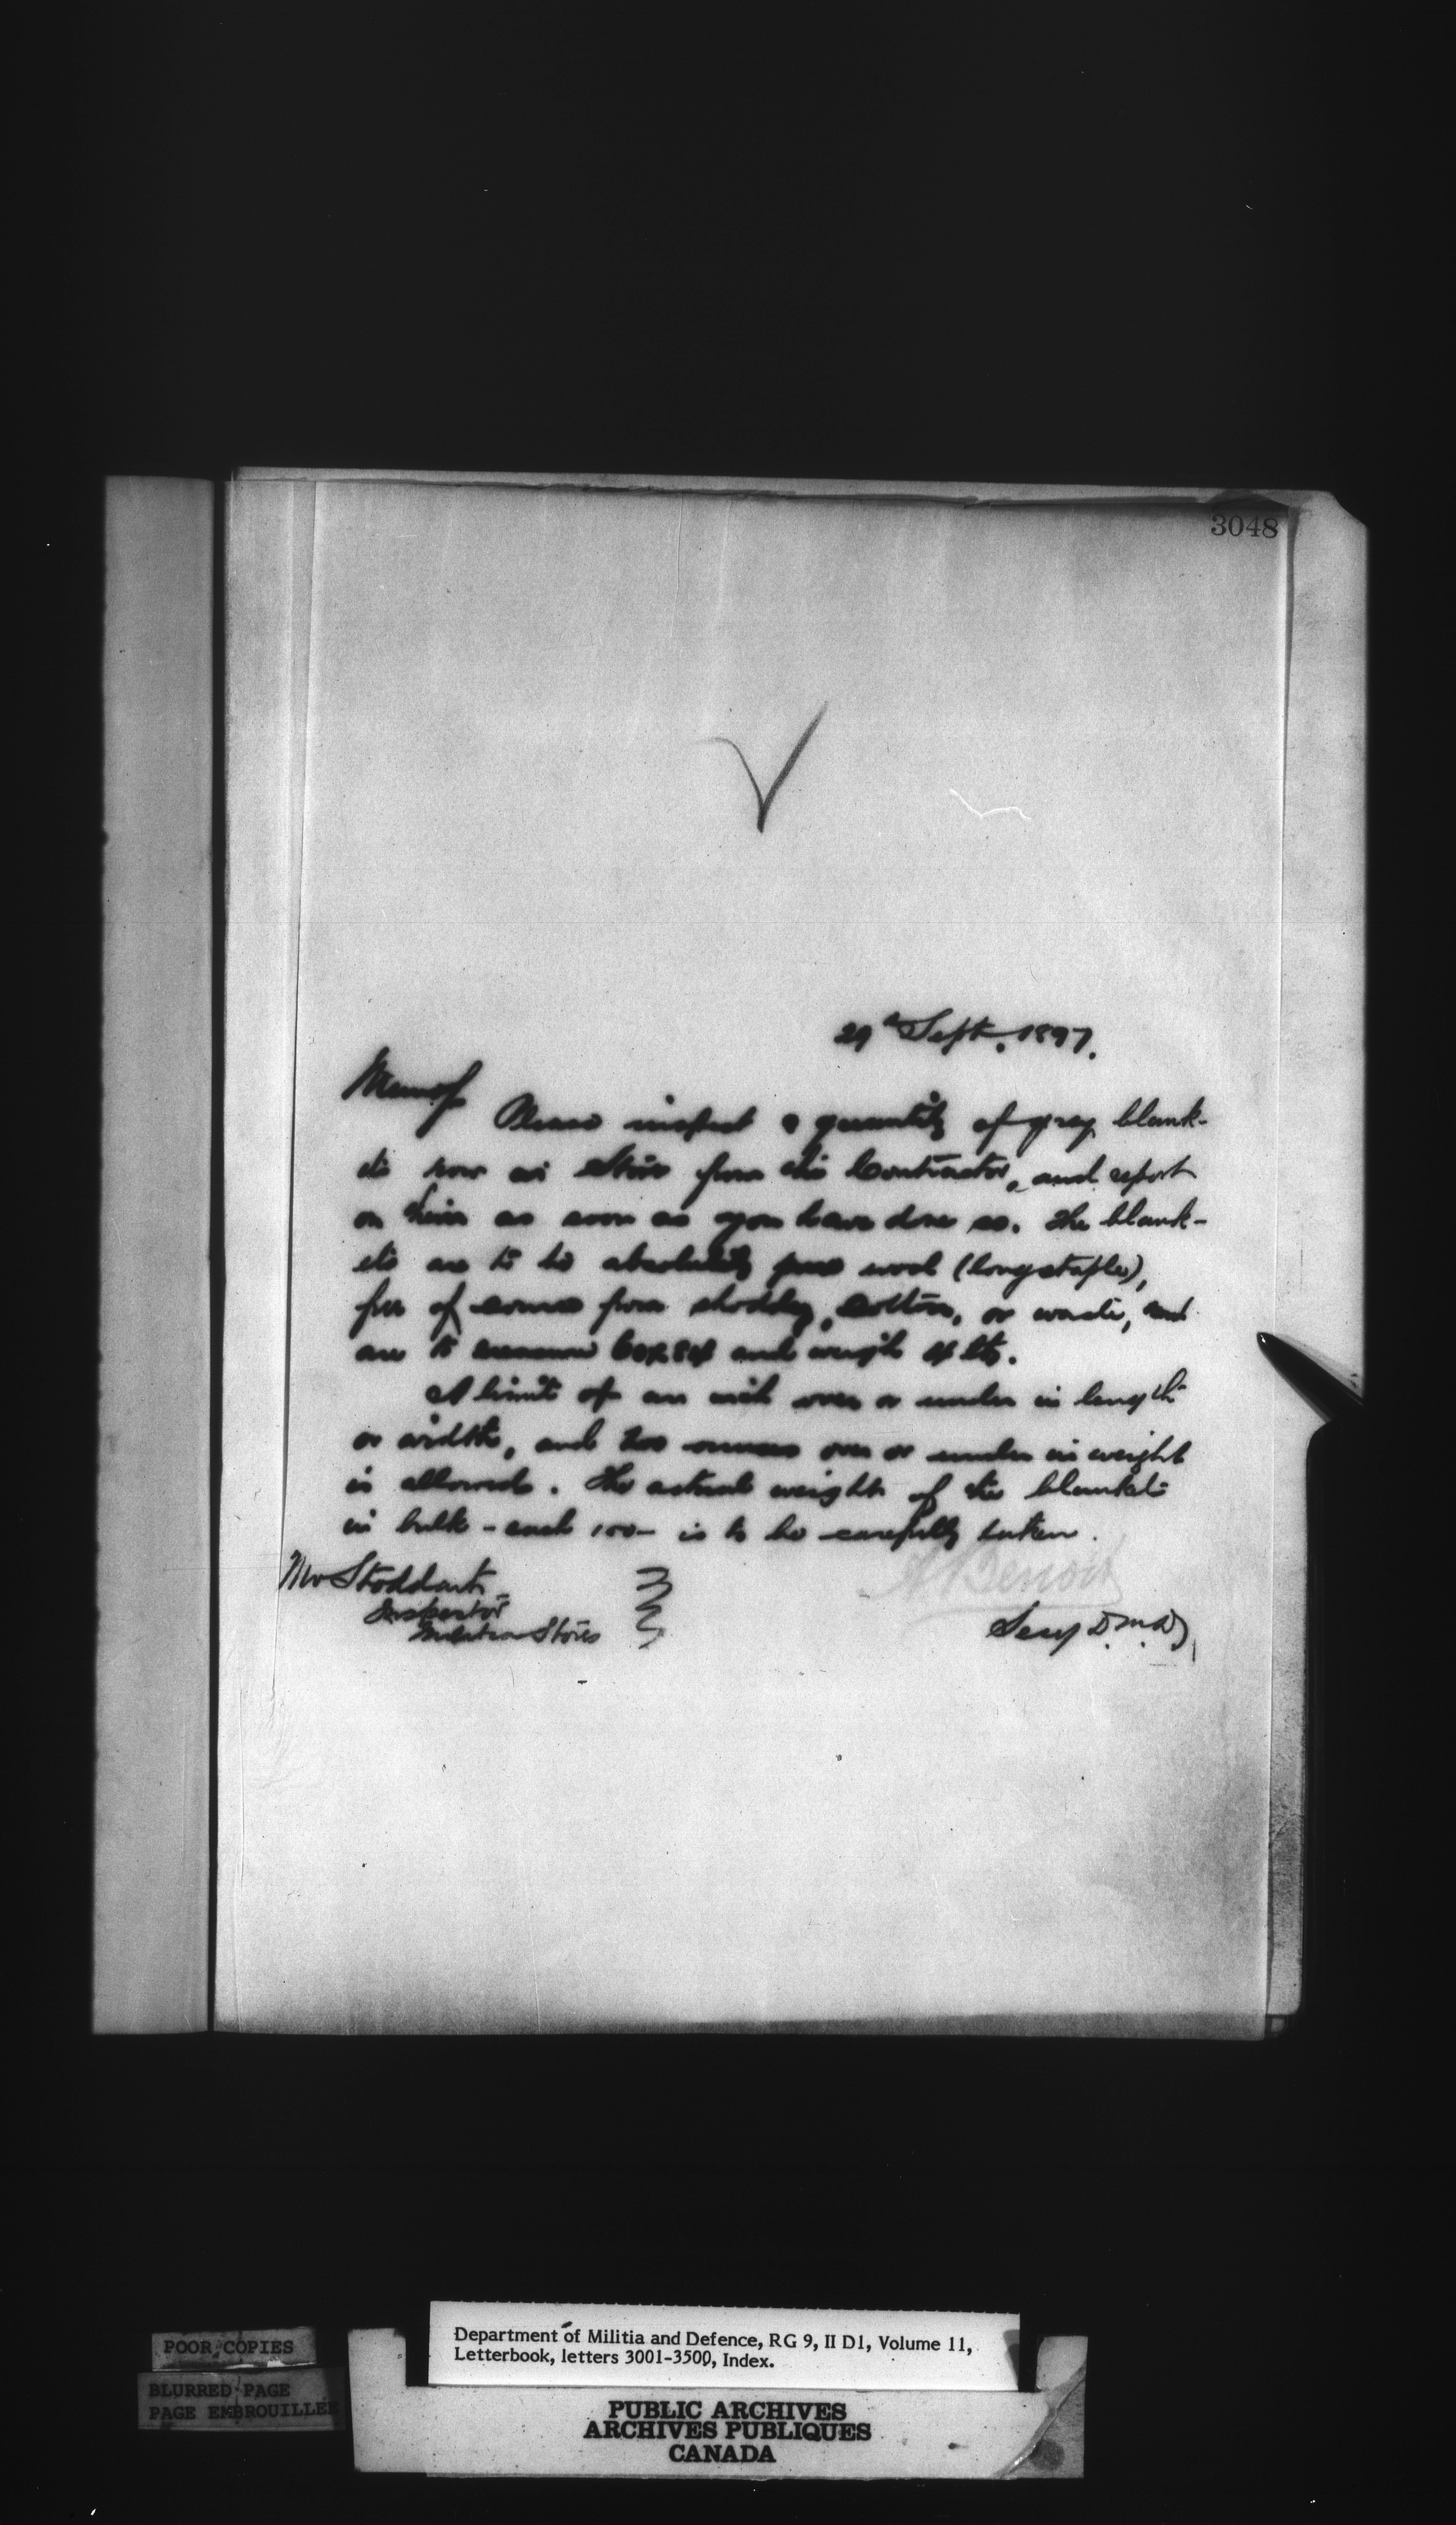 3048
29th Sept. 1897.
Memo
Please inspect a quantity of grey blank-
ets now in Store from the Contractor, and report
on them as soon as you have done so. The blank-
ets are to be absolutely pure wool (long staple),
free of course from shoddy, cotton, or waste, and
are to measure and weigh lbs.
A limit of an inch over or under in length
or width, and two ounces over or under in weight
is allowed. The actual weight of the blankets
in bulk - each 100 - is to be carefully taken.
Mr Stoddart
Inspector
Militia Stores
A Benoit
Secy D.M.D,
POOR COPIES
BLURRED PAGE
PAGE EMBROUILLEE
Department of Militia and Defence, RG 9, II D1, Volume 11,
Letterbook, letters 3001-3500, Index.
PUBLIC ARCHIVES
ARCHIVES PUBLIQUES
CANADA